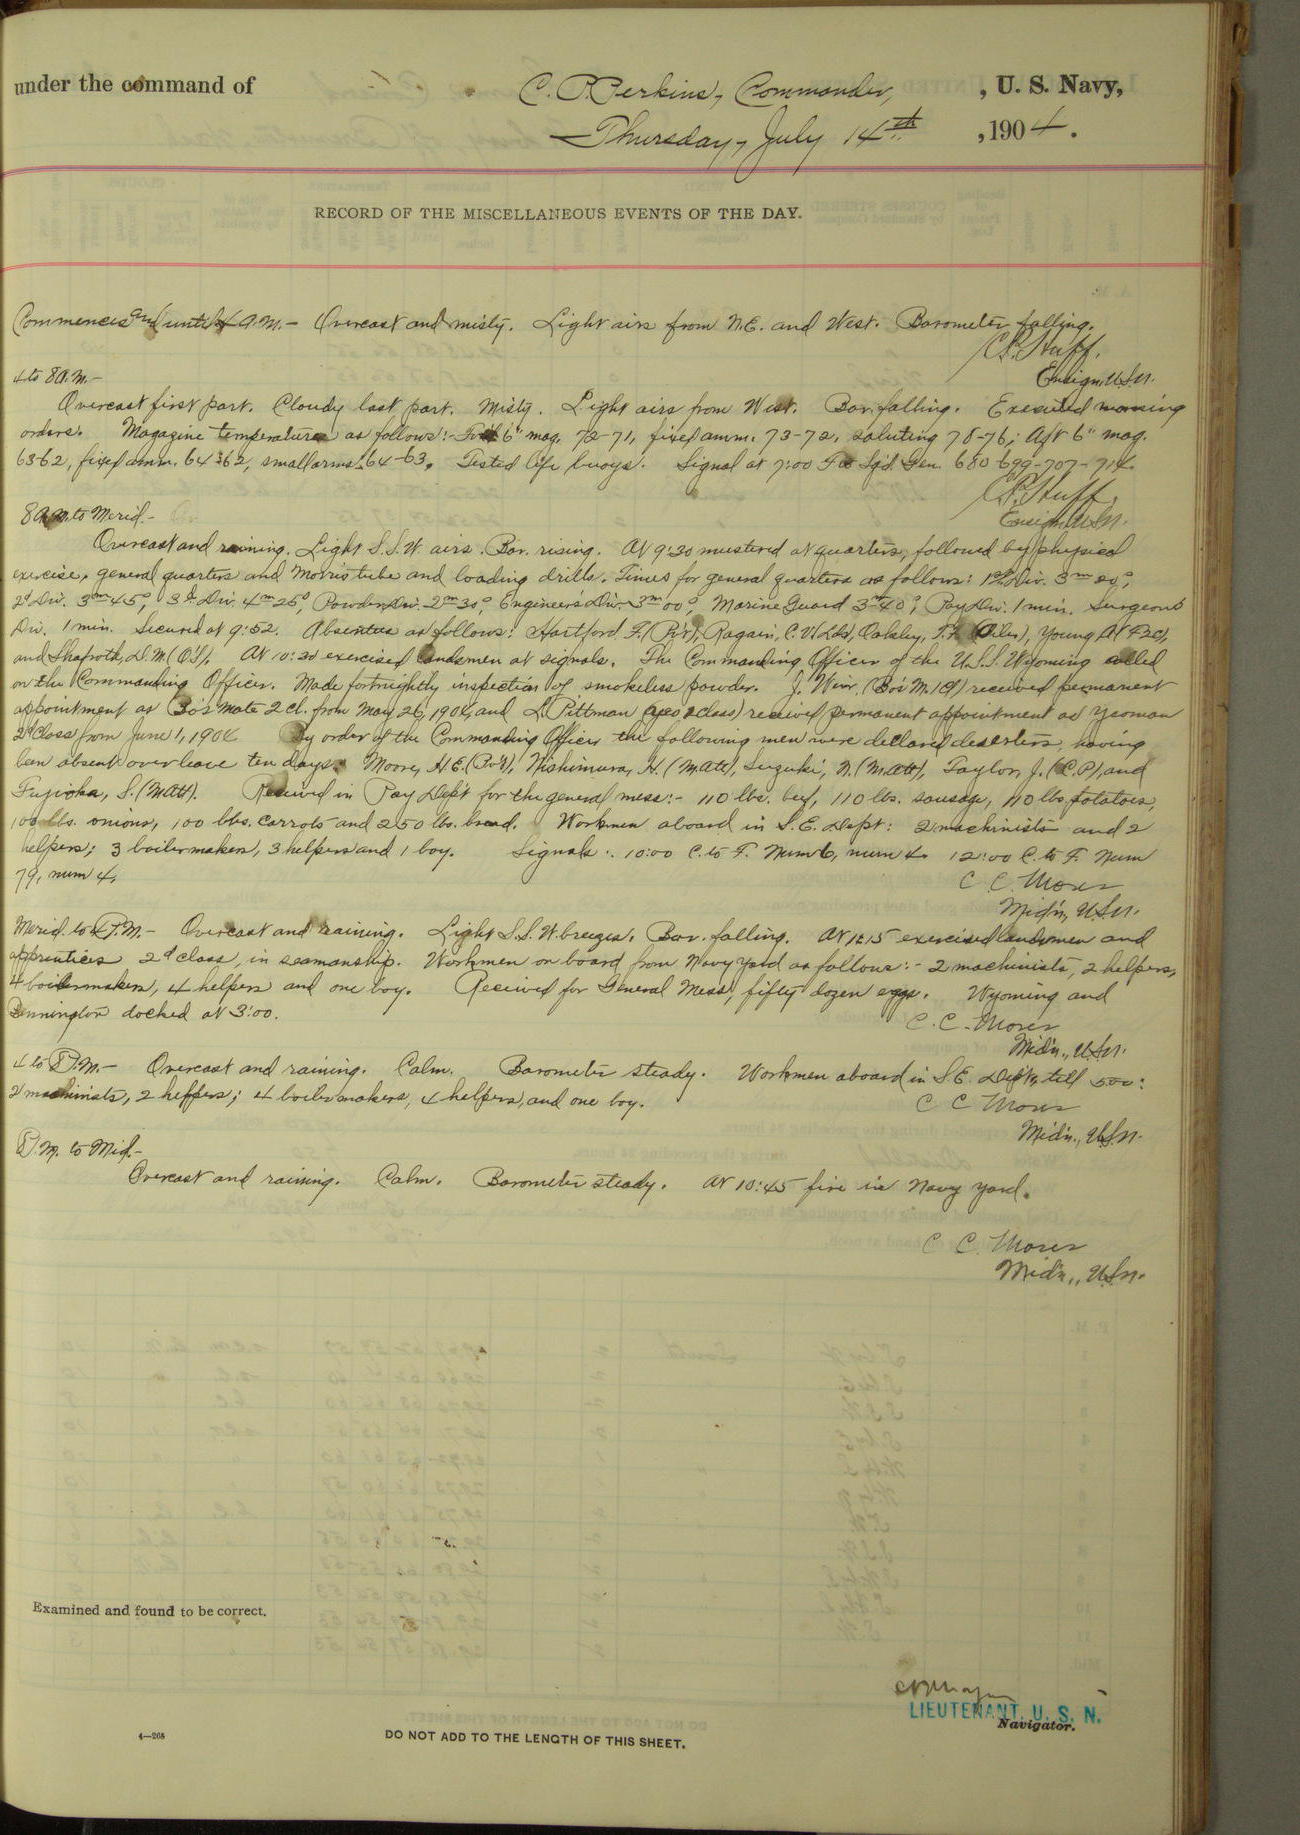 under the command of C. P. Perkins, Commander, , U. S. Navy,
Thursday, July 14th , 1904.
RECORD OF THE MISCELLANEOUS EVENTS OF THE DAY.
Commences and until 4 A.M.- Overcast and misty. Light airs from N.E. and West. Barometer falling.
Huff,
Ensign, U.S.N.
4 to 8 A.M.-
Overcast first part. Cloudy last part. Misty. Light airs from West. Bar. falling. Executed morning
orders. Magazine temperatures as follows:- 6" mag. 72-71, fixed amm. 73-72, saluting 78-76; Aft 6" mag.
63-62, fixed amm. 64-62, small arms 64-63. Tested life buoys. Signal at 7:00 Gen. 680-699-707-714.
Huff,
Ensign, U.S.N.
8 A.M. to Merid.-
Overcast and raining. Light S.S.W. airs. Bar. rising. At 9:30 mustered at quarters, followed by physical
exercise, general quarters and Morris tube and loading drills. Times for general quarters as follows: 1st Div. 3m 20s,
2d Div. 3m 45s, 3d Div. 4m 25s, Powder Div. 2m 30s, Engineer's Div. 3m 00s, Marine Guard 3m 40s, Pay Div. 1 min. Surgeon's
Div. 1 min. Secured at 9:52. Absentees as follows: Hartford F. (Pvt), Ragain, C.V. (Lds), Oakley, (Oiler), Young A (F2C),
and Shafroth, D.M. (O.S.). At 10:30 exercised landsmen at signals. The Commanding Officer of the U.S.S. Wyoming called
on the Commanding Officer. Made fortnightly inspection of smokeless powder. J. (Bo's M. 1Cl) received permanent
appointment as Bo's Mate 2 Cl. from May 26, 1904, and L. Pittman (Yeo 2 class) received permanent appointment as Yeoman
2d Class from June 1, 1904. By order of the Commanding Officer the following men were declared deserters, having
been absent over leave ten days: Moore, H.E. (Pvt), Nishimura, H. (M.Att), Suzuki, N. (M.Att), Taylor, J. (C.P.), and
Fujioka, S. (M.Att). Received in Pay Dept for the general mess:- 110 lbs. beef, 110 lbs. sausage, 110 lbs. potatoes,
100 lbs. onions, 100 lbs. carrots and 250 lbs. bread. Workmen aboard in S.E. Dept: 2 machinists and 2
helpers; 3 boilermakers, 3 helpers and 1 boy. Signals:- 10:00 C. to F. Num 6, num 4. 12:00 C. to F. Num
79, num 4.
C. C. Moses
Mid'n, U.S.N.
Merid. to 4 P.M.- Overcast and raining. Light S.S.W. breezes. Bar. falling. At 1:15 exercised landsmen and
apprentices 2d class, in seamanship. Workmen on board from Navy Yard as follows:- 2 machinists, 2 helpers,
4 boilermakers, 4 helpers and one boy. Received for General Mess, fifty dozen eggs. Wyoming and
Bennington docked at 3:00.
C. C. Moses
Mid'n., U.S.N.
4 to 8 P.M.- Overcast and raining. Calm. Barometer steady. Workmen aboard in S.E. Dept., till 5:00:
2 machinists, 2 helpers; 4 boilermakers, 4 helpers, and one boy.
C C Moses
Mid'n., U.S.N.
8 P.M. to Mid.-
Overcast and raining. Calm. Barometer steady. At 10:45 fire in Navy Yard.
C C. Moses
Mid'n., U.S.N.
Examined and found to be correct.
LIEUTENANT, U. S. N.
Navigator.
4—268
DO NOT ADD TO THE LENGTH OF THIS SHEET.